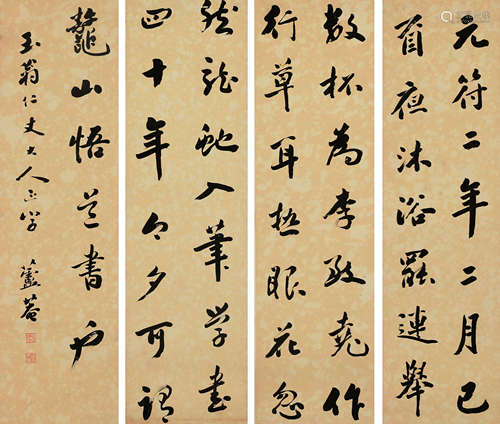 元符二年二月己
酉夜沐浴罷連舉
數杯為李致堯作
行草耳熱眼花忽
然龍蛇入筆學書
四十年今夕所謂
鼇山悟道書也
玉翁仁丈大人正字